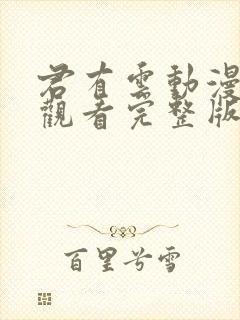 君有雲動漫
觀看完整版
百里兮雪